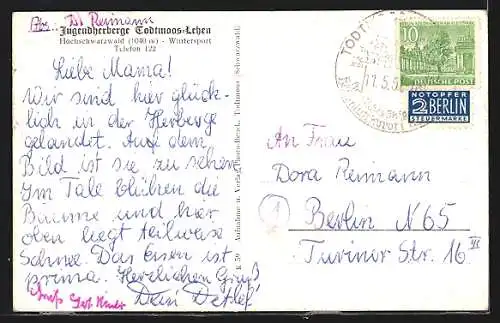 Abs. D. Reimann
Jugendherberge Todtmoos-Lehen
Hochschwarzwald (1040 m) - Wintersport
Telefon 122
Liebe Mama!
Wir sind hier glück-
lich in der Herberge
gelandet. Auf dem
Bild ist sie zu sehen.
Im Tale blühen die
Bäume und hier
oben liegt teilweise
Schnee. Das Essen ist
prima. Herzlichen Gruß
Dein Detlef
Gruß
Aufnahme u. Verlag
Todtmoos
Schwarzwald
TODTMOOS
11.5.5
10
DEUTSCHE POST
NOTOPFER
2 BERLIN
STEUERMARKE
An Frau
Dora Reimann
1
Berlin N 65
Turiner Str. 16 III